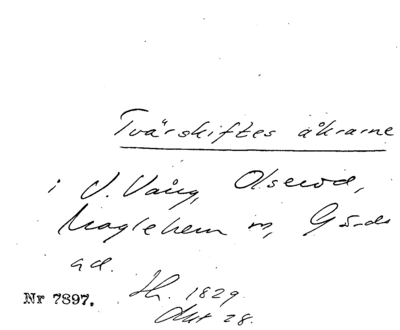 Tvärskiftes åkrarne
i V. Vång, Olseröd,
Maglehem sn, Gärds
hd.
Nr 7897. 1829
Akt 28.